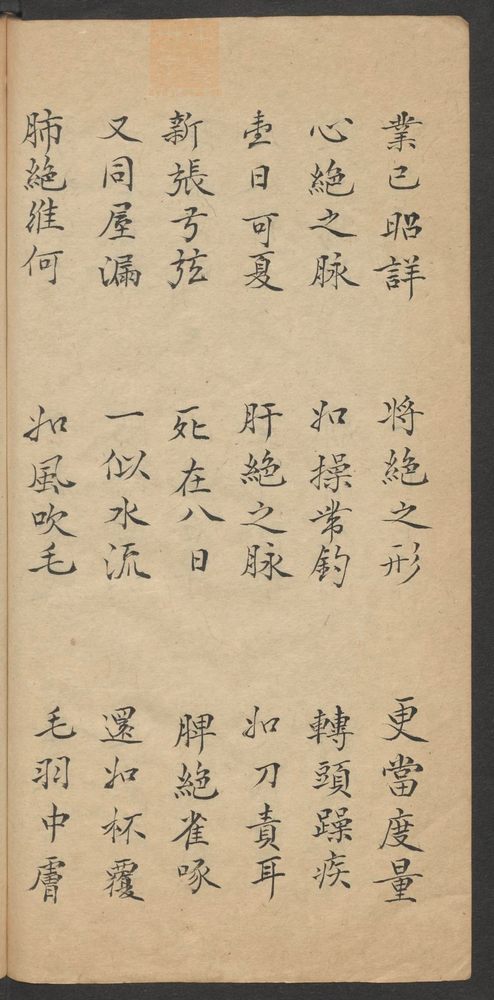 業已昭詳 将絶之形 更當度量
心絶之脉 如操带鈎 轉頭躁疾
壹日可憂 肝絶之脉 如刀責耳
新張弓弦 死在八日 脾絶雀啄
又同屋漏 一似水流 還如杯覆
肺絶維何 如風吹毛 毛羽中膚